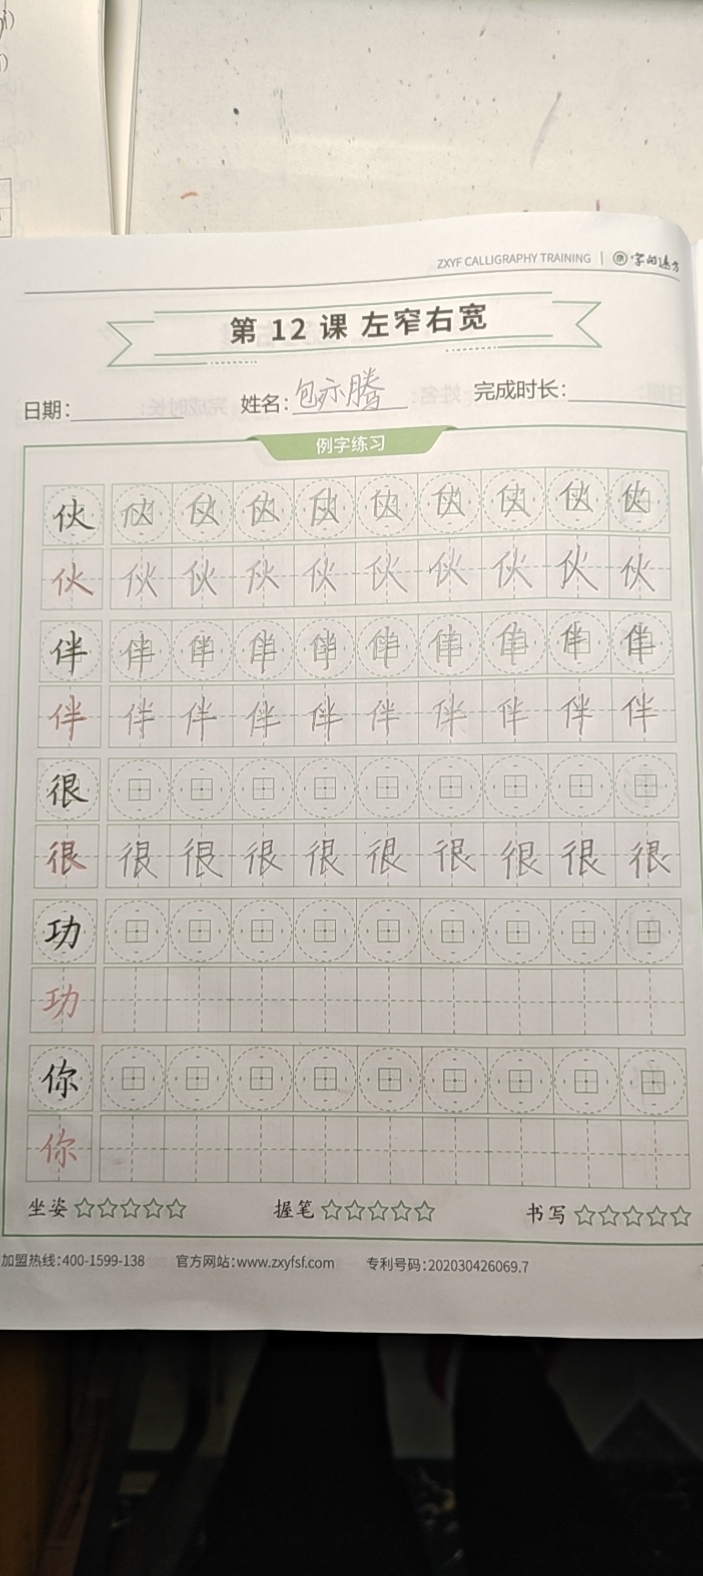 ZXYF CALLIGRAPHY TRAINING | 字的远方
第 12 课 左窄右宽
日期: 姓名: 包亦腾 完成时长:
例字练习
伙 伙 伙 伙 伙 伙 伙 伙 伙 伙
伙 伙 伙 伙 伙 伙 伙 伙 伙 伙
伴 伴 伴 伴 伴 伴 伴 伴 伴 伴
伴 伴 伴 伴 伴 伴 伴 伴 伴 伴
很
很 很 很 很 很 很 很 很 很 很
功
功
你
你
坐姿 ☆☆☆☆☆ 握笔 ☆☆☆☆☆ 书写 ☆☆☆☆☆
加盟热线:400-1599-138 官方网站:www.zxyfsf.com 专利号码:202030426069.7